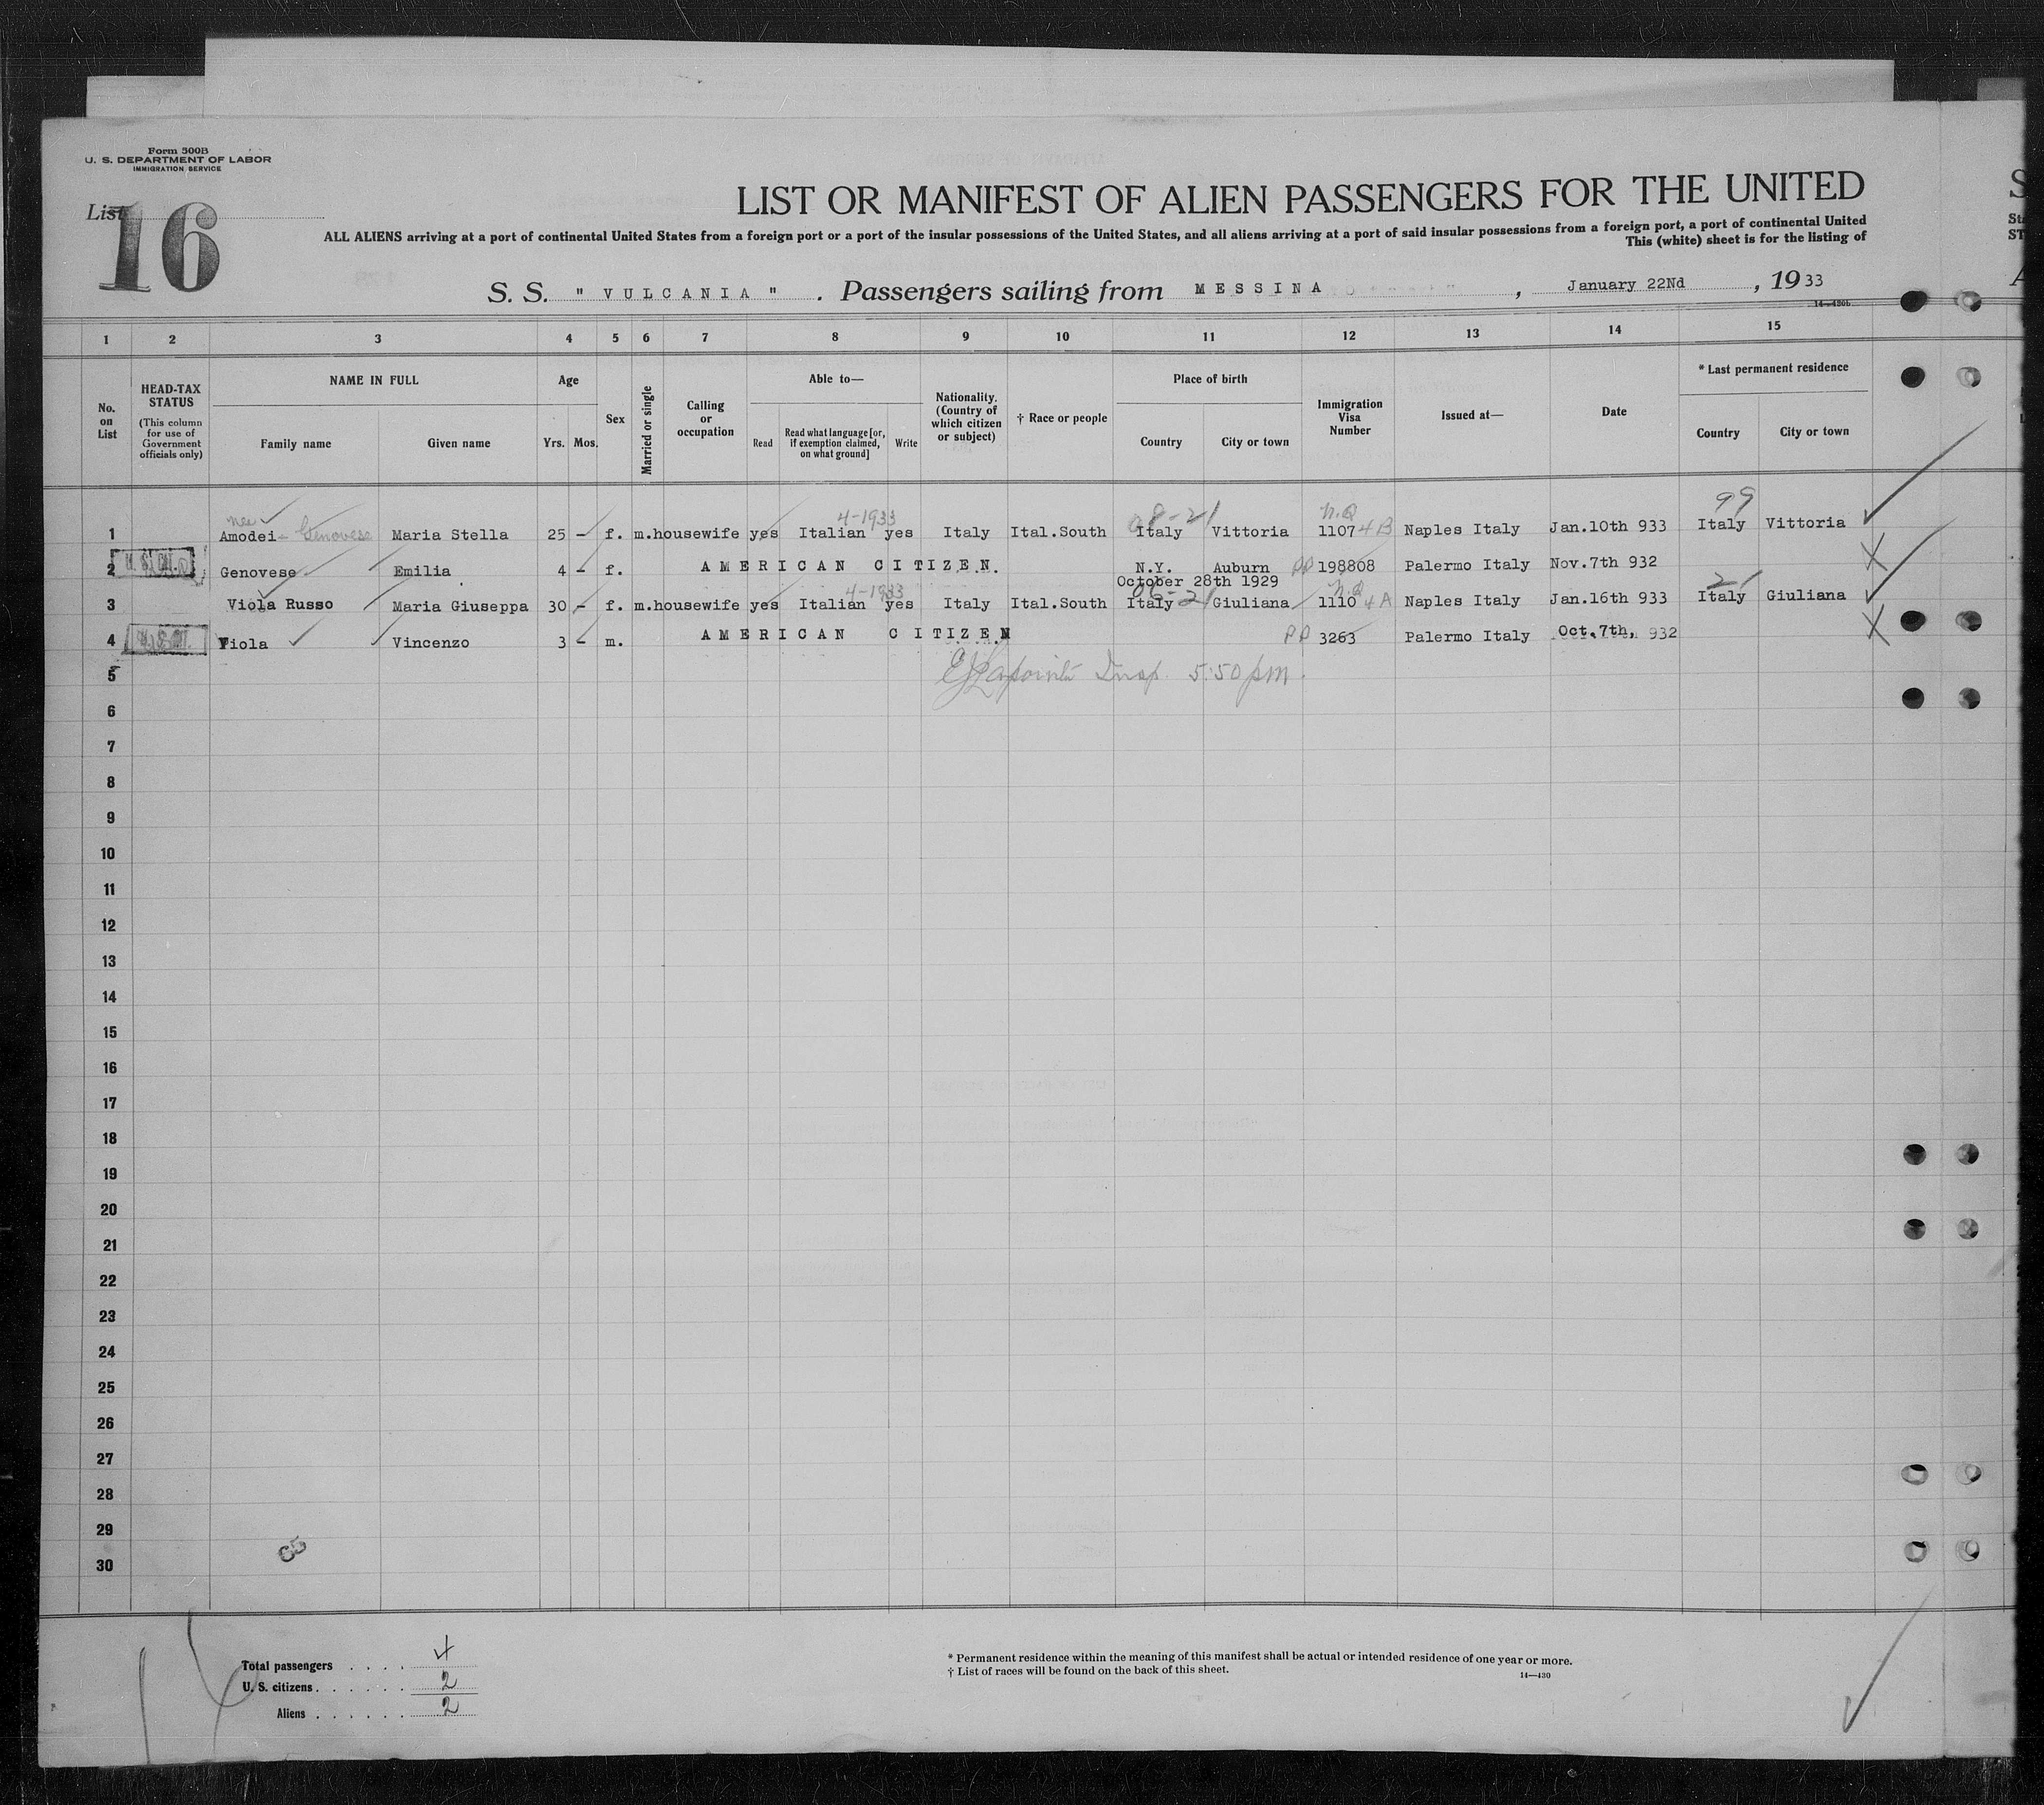 Form 500B
U. S. DEPARTMENT OF LABOR
IMMIGRATION SERVICE
List 16
LIST OR MANIFEST OF ALIEN PASSENGERS FOR THE UNITED
ALL ALIENS arriving at a port of continental United States from a foreign port or a port of the insular possessions of the United States, and all aliens arriving at a port of said insular possessions from a foreign port, a port of continental United
This (white) sheet is for the listing of
S. S. " VULCANIA " . Passengers sailing from MESSINA , January 22Nd , 1933
14—430b
1 2 3 4 5 6 7 8 9 10 11 12 13 14 15
No. on List
HEAD-TAX STATUS
(This column for use of Government officials only)
NAME IN FULL
Family name Given name
Age
Yrs. Mos.
Sex
Married or single
Calling or occupation
Able to—
Read
Read what language [or, if exemption claimed, on what ground]
Write
Nationality. (Country of which citizen or subject)
† Race or people
Place of birth
Country City or town
Immigration Visa Number
Issued at—
Date
* Last permanent residence
Country City or town
nee 4-1933 08-21 n.Q 99
1 Amodei - Genovese Maria Stella 25 - f. m. housewife yes Italian yes Italy Ital.South Italy Vittoria 1107 4B Naples Italy Jan.10th 933 Italy Vittoria
2 Genovese Emilia 4 - f. AMERICAN CITIZEN. N.Y. Auburn PP 198808 Palermo Italy Nov.7th 932
October 28th 1929
4-1933 06-21 n.Q 21
3 Viola Russo Maria Giuseppa 30 - f. m. housewife yes Italian yes Italy Ital.South Italy Giuliana 1110 4A Naples Italy Jan.16th 933 Italy Giuliana
4 Viola Vincenzo 3 - m. AMERICAN CITIZEN PP 3263 Palermo Italy Oct.7th, 932
5 Insp. 5:50 pm.
6
7
8
9
10
11
12
13
14
15
16
17
18
19
20
21
22
23
24
25
26
27
28
29
30
Total passengers . . . . 4
U. S. citizens . . . . . . 2
Aliens . . . . . . 2
* Permanent residence within the meaning of this manifest shall be actual or intended residence of one year or more.
† List of races will be found on the back of this sheet.
14—430